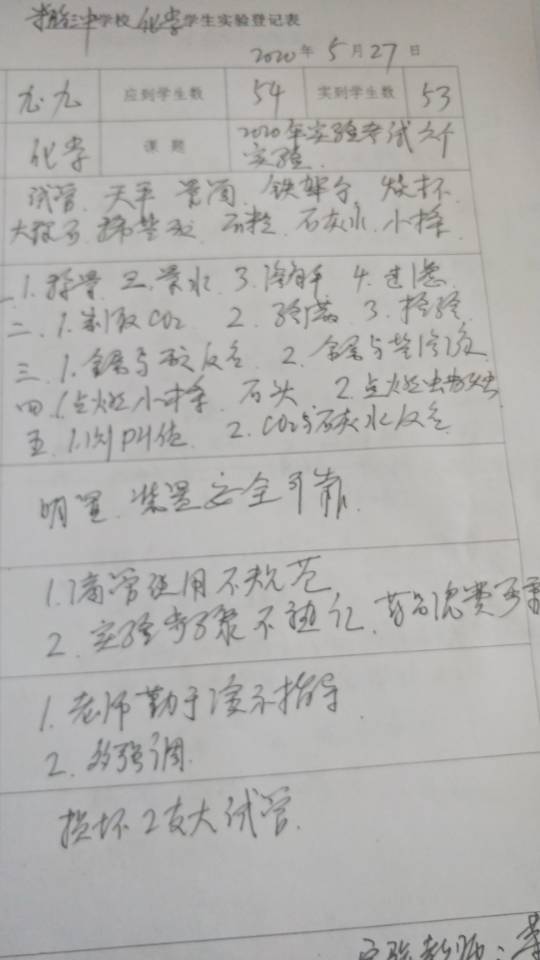 三中学校化学学生实验登记表
2020年5月27日
九.九 应到学生数 54 实到学生数 53
化学 课题 2020年实验考试六个
实验.
试管、天平 量筒、铁架台、烧杯
大 石灰水.小
一.1.称量 2.量水 3.溶解 4.过滤
二.1.制取CO2 2.验满 3.检验
三.1.金属与酸反应 2.金属与盐溶液
四.1点燃小 2.点燃
五.1.测PH值 2.CO2与石灰水反应
明显、装置安全可靠
1.滴管使用不规范
2.实验步骤不熟化、药品浪费严重
1.老师勤于演示指导
2.多强调.
损坏2支大试管.
实验教师: